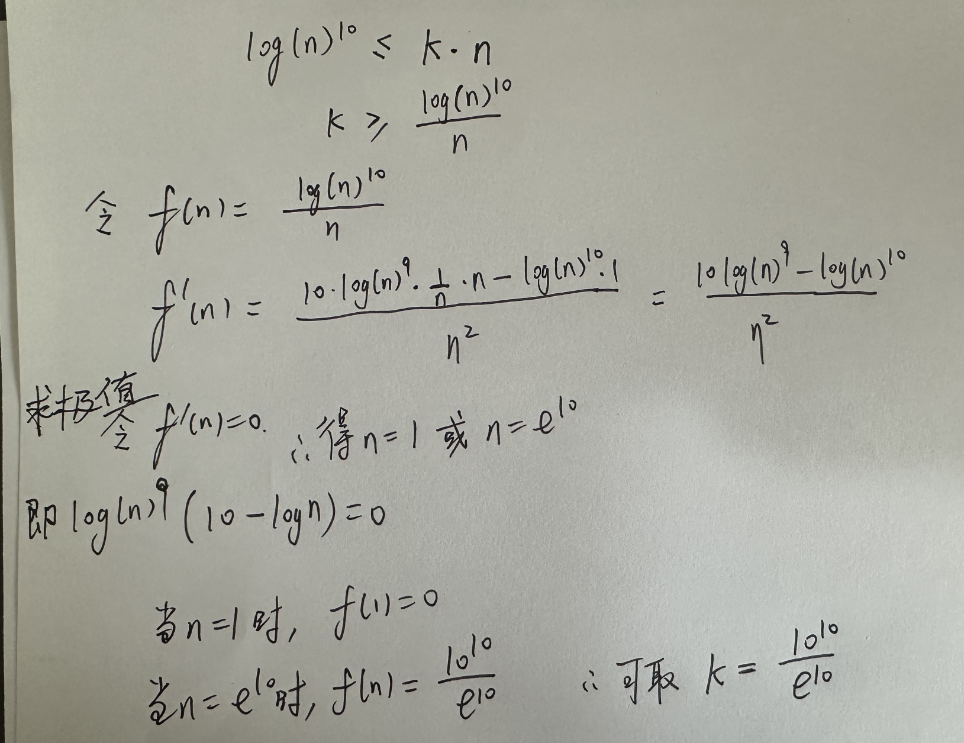 log(n)^10 ≤ k·n
k ≥ log(n)^10 / n
令 f(n) = log(n)^10 / n
f'(n) = (10·log(n)^9 · 1/n · n − log(n)^10 · 1) / n² = (10log(n)^9 − log(n)^10) / n²
求极值
令 f'(n)=0. ∴得 n=1 或 n=e^10
即 log(n)^9 (10−logn)=0
当n=1时, f(1)=0
当n=e^10时, f(n) = 10^10 / e^10 ∴可取 k = 10^10 / e^10